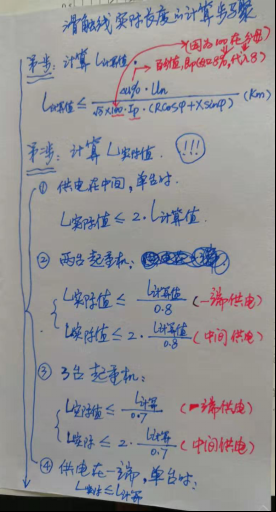 滑触线实际长度的计算步骤
第一步: 计算 L计算值.
(因为100在分母)
→ 百分值, 即(如0.8%, 代入8)
L计算值 ≤ Δu% · Un / √3 × 100 · Ip · (Rcosφ + Xsinφ) (Km)
第二步: 计算 L实际值. (!!!)
① 供电在中间, 单台时.
L实际值 ≤ 2 · L计算值.
② 两台起重机:
L实际值 ≤ L计算值 / 0.8 (一端供电)
L实际值 ≤ 2 · L计算值 / 0.8 (中间供电)
③ 3台起重机:
L实际值 ≤ L计算 / 0.7 (一端供电)
L实际 ≤ 2 · L计算 / 0.7 (中间供电)
④ 供电在一端, 单台时:
L实际 ≤ L计算